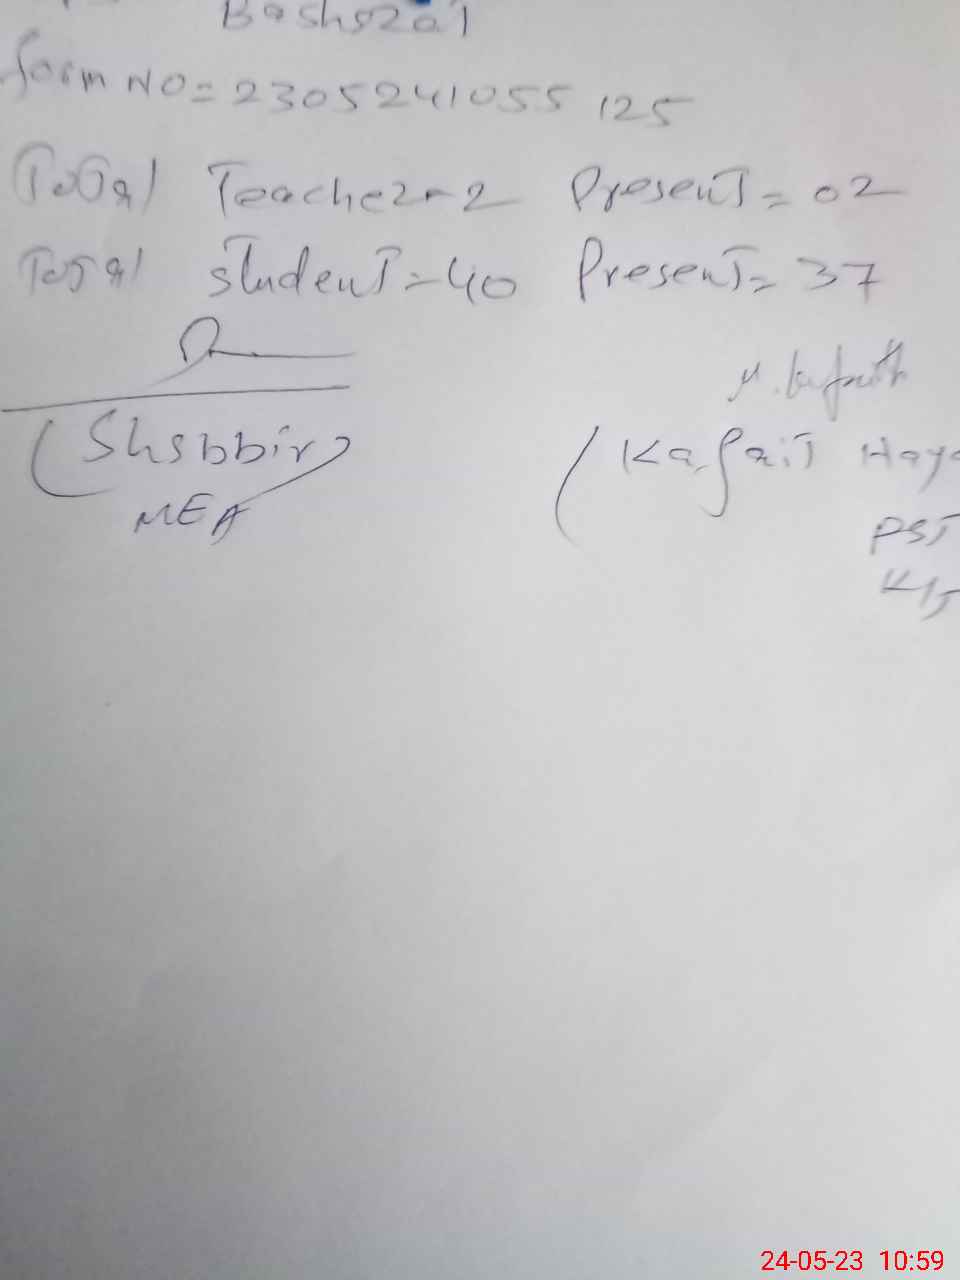 form NO = 2305241055125
Total Teacher = 2 Present = 02
Total student = 40 Present = 37
(Shabbir)
(Kafait Haya
MEA
PST
24-05-23 10:59